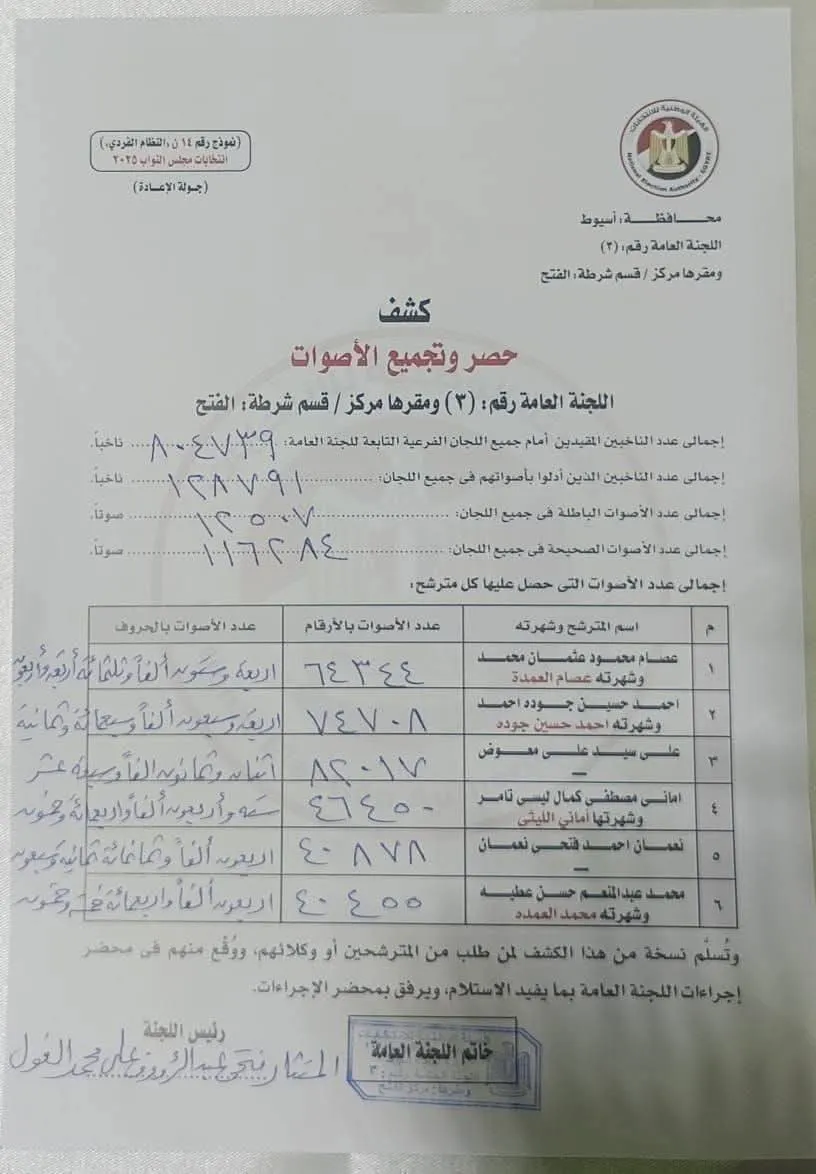 الهيئة الوطنية للانتخابات
National Election Authority - EGYPT
(نموذج رقم ١٤ ن، النظام الفردي،)
انتخابات مجلس النواب ٢٠٢٥
(جولة الإعادة)
محــافظــة: أسيوط
اللجنة العامة رقم: (٣)
ومقرها مركز / قسم شرطة: الفتح
كشف
حصر وتجميع الأصوات
اللجنة العامة رقم: (٣) ومقرها مركز / قسم شرطة: الفتح
إجمالى عدد الناخبين المقيدين أمام جميع اللجان الفرعية التابعة للجنة العامة: ٨٠٤٧٣٩ ناخباً.
إجمالى عدد الناخبين الذين أدلوا بأصواتهم فى جميع اللجان: ١٢٨٧٩١ ناخباً.
إجمالى عدد الأصوات الباطلة فى جميع اللجان: ١٢٥٠٧ صوتاً.
إجمالى عدد الأصوات الصحيحة فى جميع اللجان: ١١٦٢٨٤ صوتاً.
إجمالى عدد الأصوات التى حصل عليها كل مترشح:
م اسم المترشح وشهرته عدد الأصوات بالأرقام عدد الأصوات بالحروف
١ عصام محمود عثمان محمد وشهرته عصام العمدة ٦٤٣٤٤ اربعة وستون ألفاً وثلثمائة أربعة وأربعون
٢ احمد حسين جوده احمد وشهرته احمد حسين جوده ٧٤٧٠٨ اربعة وسبعون ألفاً وسبعمائة وثمانية
٣ على سيد على معوض ـ ٨٢٠١٧ اثنان وثمانون الفاً وسبعة عشر
٤ امانى مصطفى كمال ليسى تامر وشهرتها أماني الليثى ٤٦٤٥٠ ستة وأربعون ألفاً واربعمائة وخمسون
٥ نعمان احمد فتحى نعمان ـ ٤٠٨٧٨ اربعون ألفاً وثمانمائة ثمانية وسبعون
٦ محمد عبدالمنعم حسن عطيه وشهرته محمد العمده ٤٠٤٥٥ اربعون ألفاً واربعمائة خمسة وخمسون
وتُسلَّم نسخة من هذا الكشف لمن طلب من المترشحين أو وكلائهم، ووُقّع منهم فى محضر
إجراءات اللجنة العامة بما يفيد الاستلام، ويرفق بمحضر الإجراءات.
رئيس اللجنة
خاتم اللجنة العامة
المستشار فتحى عبدالرؤوف على محمد الغول